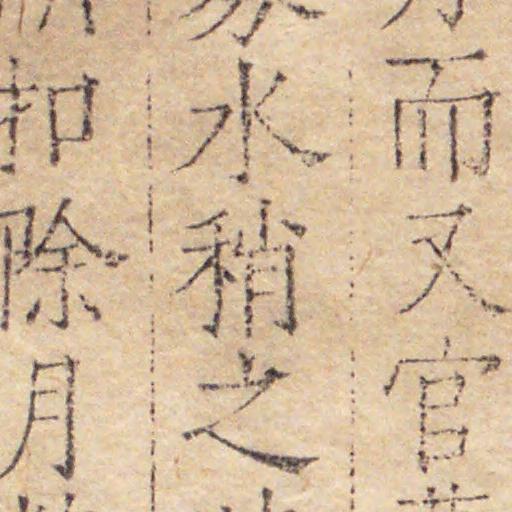 而又官
水稍之
扣除月